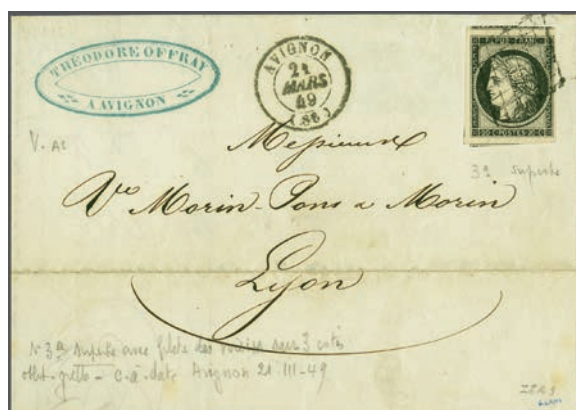 THÉODORE OFFRAY
A AVIGNON
AVIGNON
21
MARS
49
(86)
REPUB. FRANC.
20 C POSTES 20 C
Messieurs
3a superbe
Vve Morin-Pons & Morin
Lyon
N° 3a superbe avec filets des voisins sur 3 cotés
oblit. grille - c. à date Avignon 21-III-49